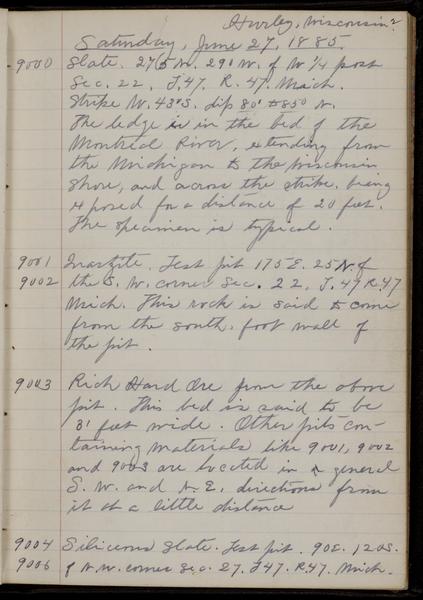 Hurley, Wisconsin
Saturday, June 27, 1885.
9000 Slate. 275 N. 290 W. of W 1/4 post
Sec. 22, T.47. R. 47. Mich.
Strike W. 43° S. dip 80° to 850 N.
The ledge is in the bed of the
Montreal River, extending from
the Michigan to the Wisconsin
Shore, and across the strike, being
exposed for a distance of 20 feet.
The specimen is typical.
9001 Quartzite. Test pit 175 E. 25 N. of
9002 the S. W. corner Sec. 22, T. 47 R. 47
Mich. This rock is said to come
from the south, foot wall of
the pit.
9003 Rich Hard Ore from the above
pit. This bed is said to be
31 feet wide. Other pits con-
taining materials like 9001, 9002
and 9003 are located in a general
S. W. and N. E. directions from
it at a little distance
9004 Siliceous Slate. Test pit. 90 E. 120 S.
9006 of N. W. corner Sec. 27. T47. R.47. Mich.